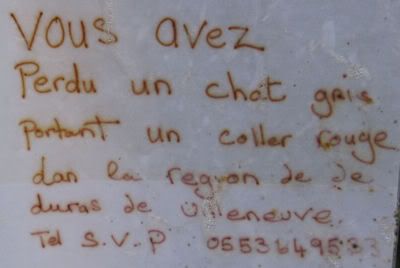 VOUS avez
Perdu un chat gris
portant un coller rouge
dan la region de de
duras de Villeneuve.
Tel S.V.P 0553649533